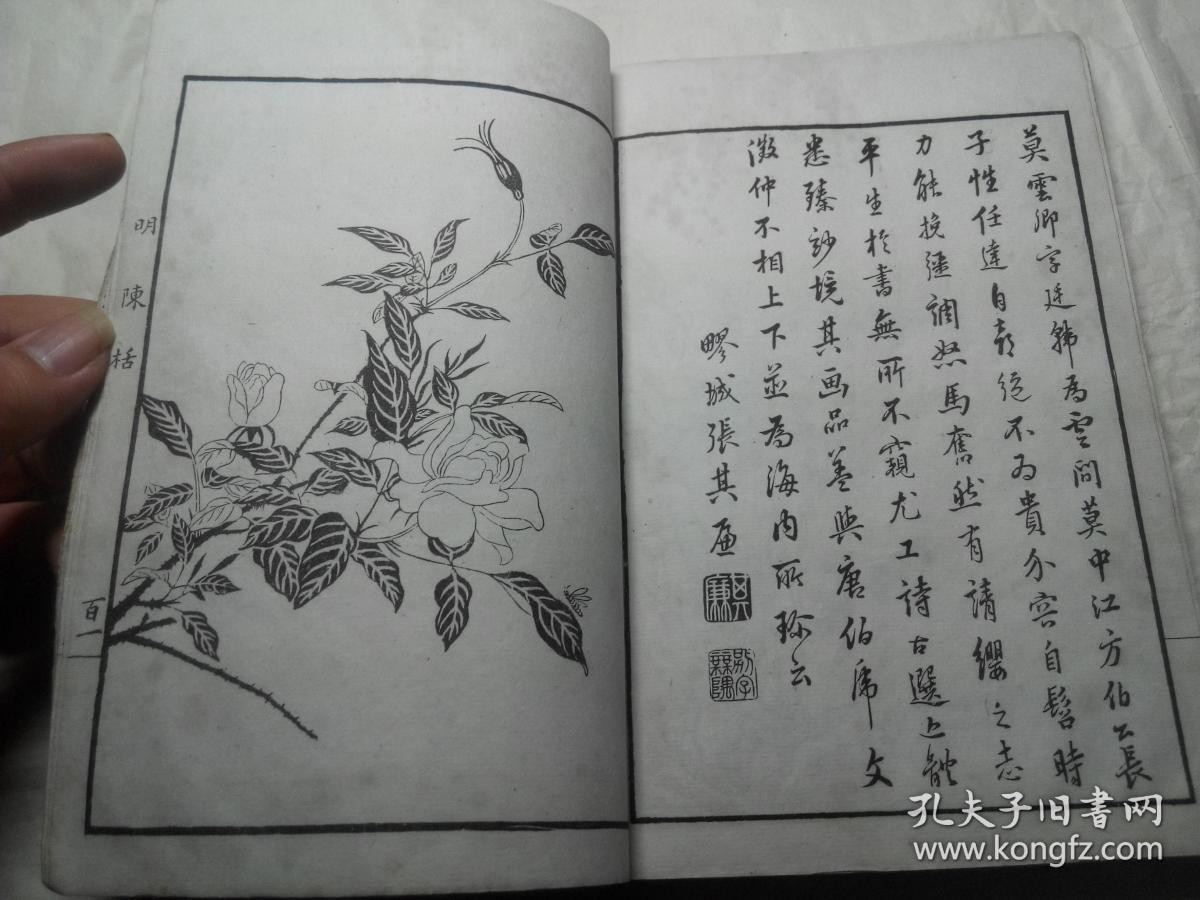 莫雲卿字廷韩為雲間莫中江方伯公長
子性任達自喜絕不为貴介容自髫時
力能挽彊調怒馬奮然有請纓之志
平生於書無所不窺尤工詩古選近體
悉臻妙境其画品益與唐伯虎文
徵仲不相上下並為海内所珎云
疁城張其
明 陳栝
百一
孔夫子旧书网
www.kongfz.com